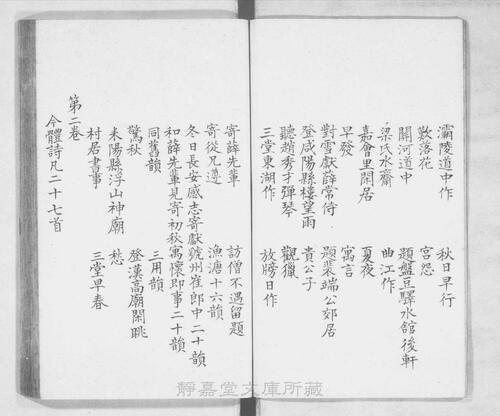 灞陵道中作　秋日早行
歎落花　宮怨
關河道中　題盤豆驛水舘後軒
梁氏水齋　曲江作
嘉會里閑居　夏夜
早發　寓言
對雪獻薛常侍　題裴端公郊居
登咸陽縣樓望雨　貴公子
聽趙秀才彈琴　觀獵
三堂東湖作　放牓日作
寄薛先輩　訪僧不遇留題
寄從兄遵　漁溏十六韻
冬日長安感志寄獻虢州崔郎中二十韻
和薛先輩見寄初秋寓懷即事二十韻
同舊韻　三用韻
驚秋　登漢高廟閑眺
耒陽縣浮山神廟　愁
村居書事　三堂早春
第二卷
今體詩凡二十七首
靜嘉堂文庫所藏